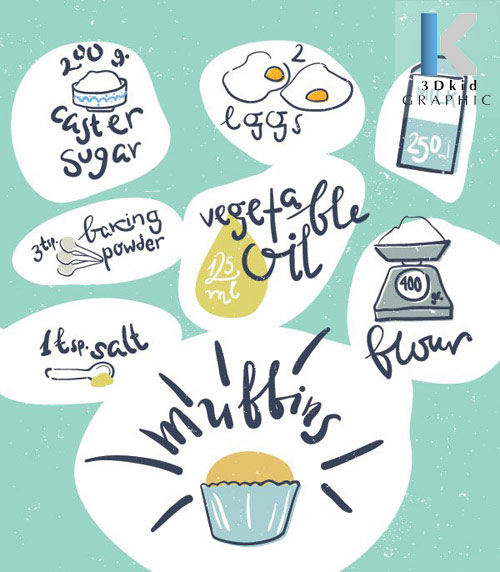 200 g.
caster
sugar
2
eggs
3Dkid
GRAPHIC
250
3 tsp. baking
powder
vegetable
oil
125
ml
400
gr.
flour
1 tsp. salt
muffins